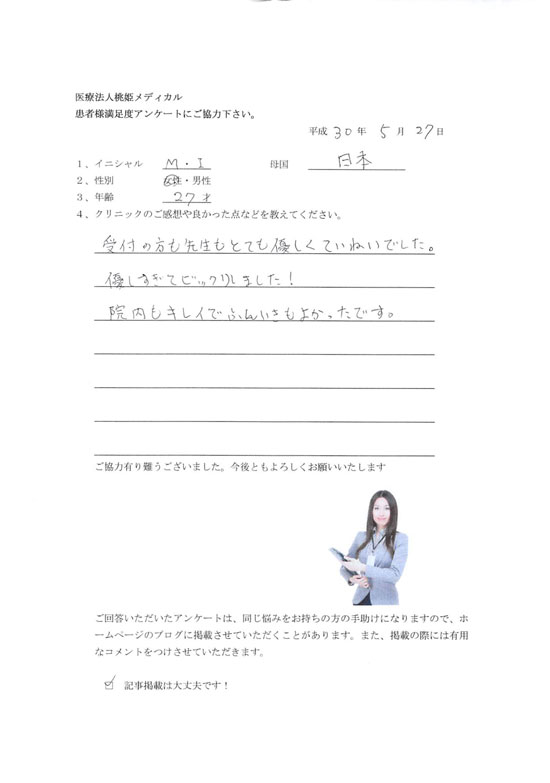 医療法人桃姫メディカル
患者様満足度アンケートにご協力下さい。
平成 30 年 5 月 27 日
1、イニシャル M・I 母国 日本
2、性別 女性・男性
3、年齢 27才
4、クリニックのご感想や良かった点などを教えてください。
受付の方も先生もとても優しくていねいでした。
優しすぎてビックリしました！
院内もキレイでふんいきもよかったです。
ご協力有り難うございました。今後ともよろしくお願いいたします
ご回答いただいたアンケートは、同じ悩みをお持ちの方の手助けになりますので、ホ
ームページのブログに掲載させていただくことがあります。また、掲載の際には有用
なコメントをつけさせていただきます。
☑ 記事掲載は大丈夫です！